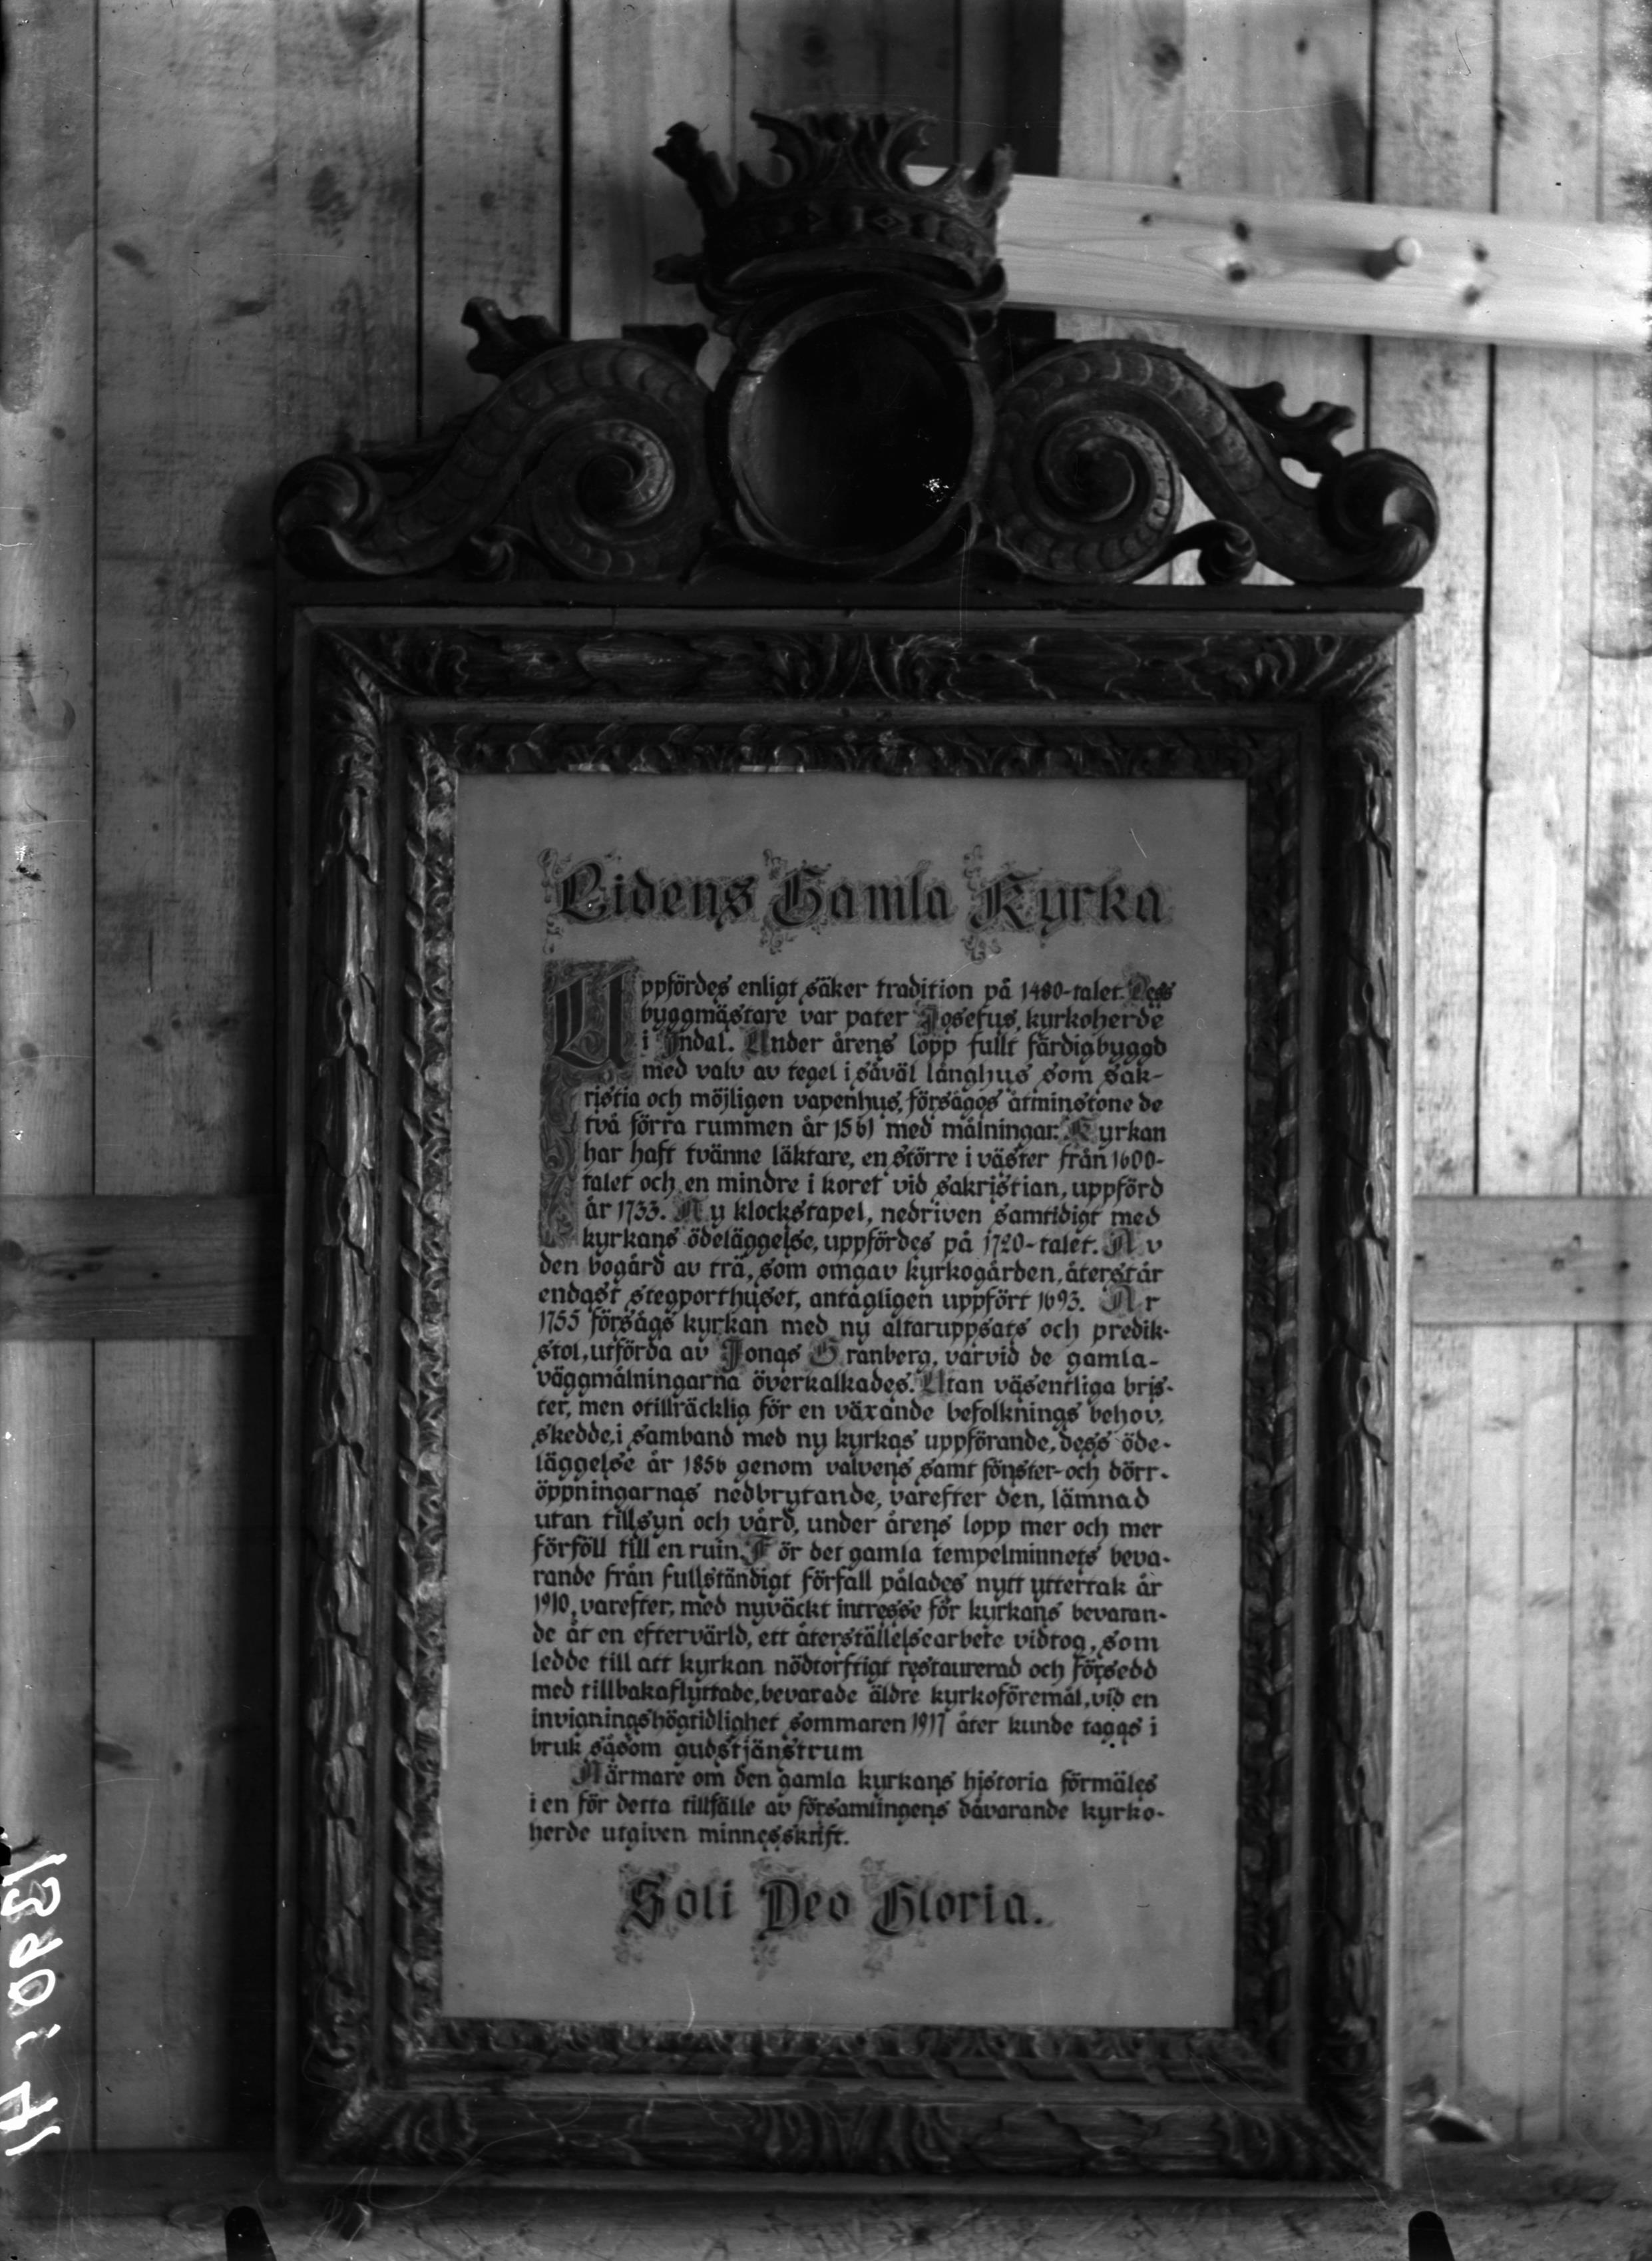 Lidens Gamla Kyrka
Uppfördes enligt säker tradition på 1480-talet. Dess
byggmästare var pater Josefus, kyrkoherde
i Indal. Under årens lopp fullt färdigbyggd
med valv av tegel i såväl långhus som sak-
ristia och möjligen vapenhus, försågos åtminstone de
två förra rummen år 1561 med målningar. Kyrkan
har haft tvänne läktare, en större i väster från 1600-
talet och en mindre i koret vid sakristian, uppförd
år 1733. Ny klockstapel, nedriven samtidigt med
kyrkans ödeläggelse, uppfördes på 1720-talet. Av
den bogård av trä, som omgav kyrkogården, återstår
endast stegporthuset, antagligen uppfört 1693. År
1755 försågs kyrkan med ny altaruppsats och predik-
stol, utförda av Jonas Granberg, varvid de gamla-
väggmålningarna överkalkades. Utan väsentliga bris-
ter, men otillräcklig för en växande befolknings behov,
skedde, i samband med ny kyrkas uppförande, dess öde-
läggelse år 1856 genom valvens samt fönster- och dörr-
öppningarnas nedbrytande, varefter den, lämnad
utan tillsyn och vård, under årens lopp mer och mer
förföll till en ruin. För det gamla tempelminnets beva-
rande från fullständigt förfall pålades nytt yttertak år
1910, varefter, med nyväckt intresse för kyrkans bevaran-
de åt en eftervärld, ett återställelsearbete vidtog, som
ledde till att kyrkan nödtorftigt restaurerad och försedd
med tillbakaflyttade, bevarade äldre kyrkoföremål, vid en
invigningshögtidlighet sommaren 1917 åter kunde tagas i
bruk såsom gudstjänstrum
Närmare om den gamla kyrkans historia förmäles
i en för detta tillfälle av församlingens dåvarande kyrko-
herde utgiven minnesskrift.
Soli Deo Gloria.